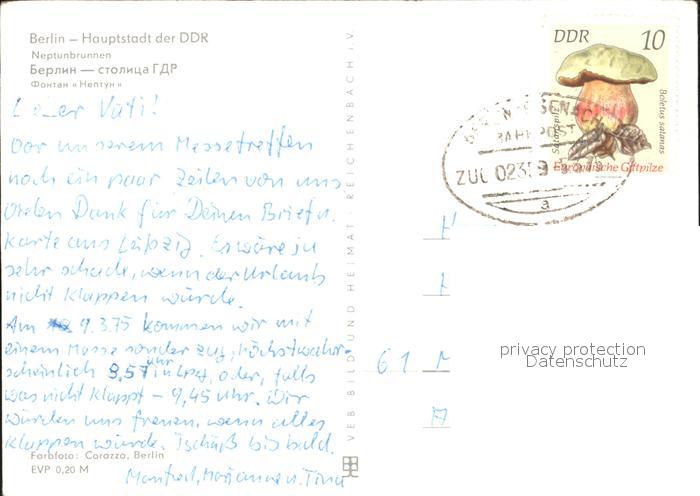 Berlin – Hauptstadt der DDR
Neptunbrunnen
Берлин — столица ГДР
Фонтан «Нептун»
Lieber Vati!
Vor unserem Messetreffen
noch ein paar Zeilen von uns
Vielen Dank für Deinen Brief u.
Karte aus Leipzig. Es wäre ja
sehr schade, wenn der Urlaub
nicht klappen würde.
Am 9.3.75 kommen wir mit
einem Messesonderzug, höchstwahr-
scheinlich 8,57 Uhr in Lpzg, oder, falls
was nicht klappt – 9,45 Uhr. Wir
würden uns freuen, wenn alles
klappen würde. Tschüß bis bald.
Manfred, Marianne u. Tina
Farbfoto: Corazza, Berlin
EVP 0,20 M
VEB BILD UND HEIMAT REICHENBACH i.V.
DDR 10
Boletus satanas
Satanspilz
Europäische Giftpilze
BAHNPOST
ZUG 02359
a
61
privacy protection
Datenschutz